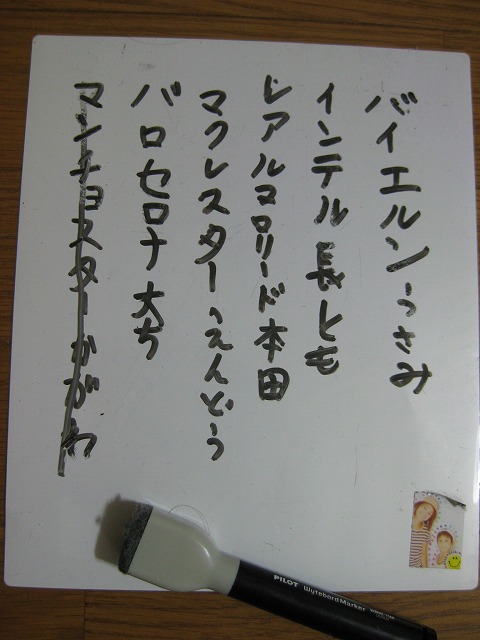 バイエルンうさみ
インテル長とも
レアルマロリード本田
マクレスターえんどう
バロセロナ大ち
マンチョスターかがわ
PILOT WyteboardMarker